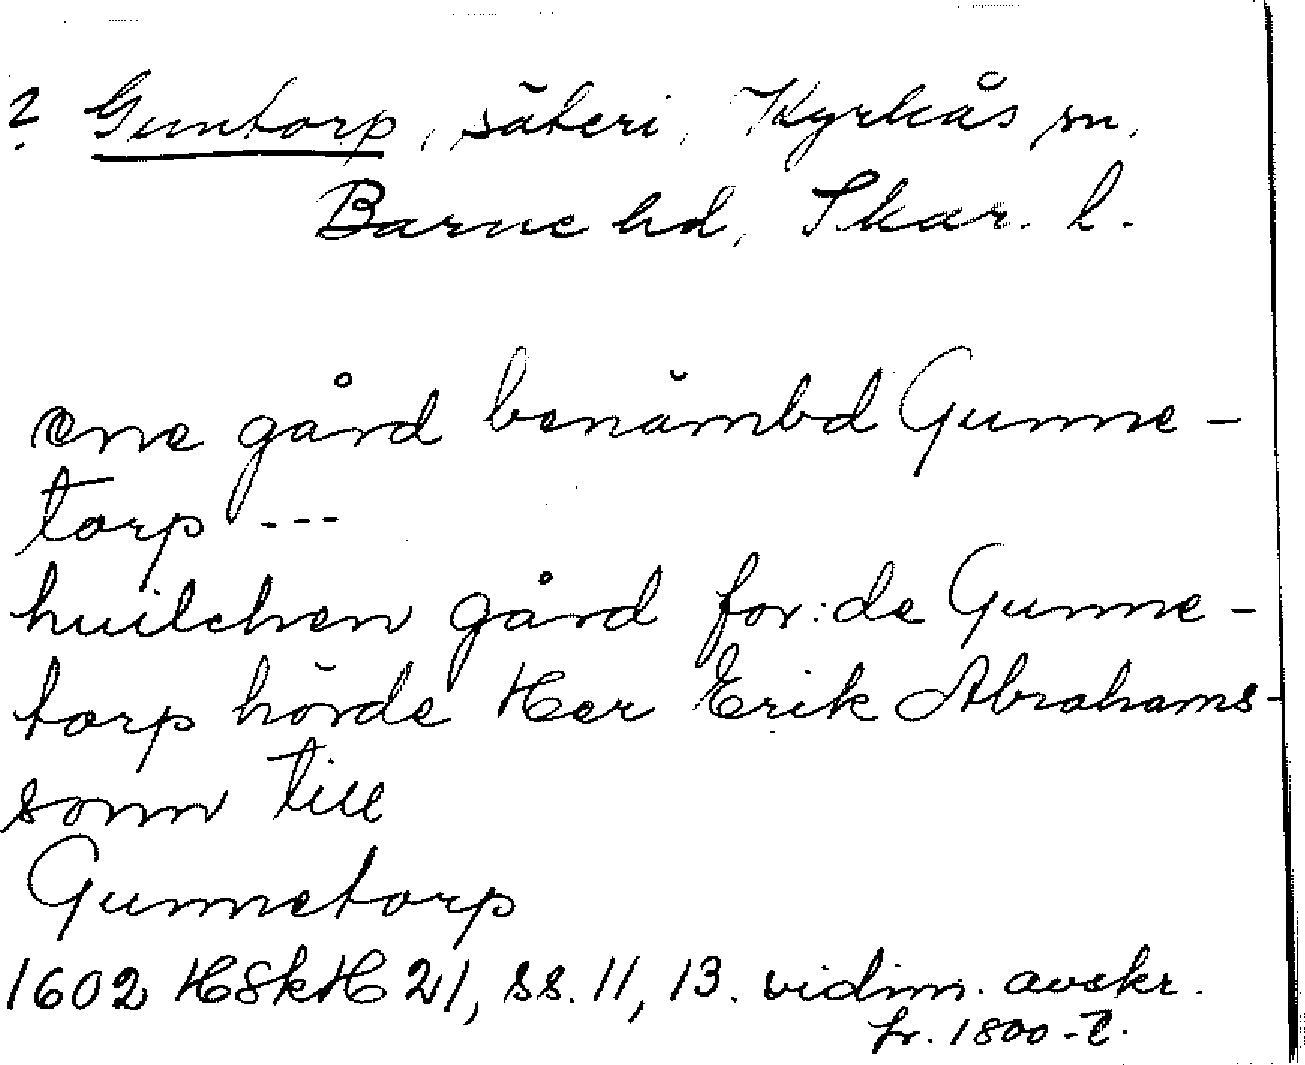 ? Guntorp, säteri, Kyrkås sn,
Barne hd, Skar. l.
ene gård benämbd Gunne-
torp ---
huilchen gård for:de Gunne-
torp hörde Her Erik Abrahams-
sonn till
Gunnetorp
1602 HSkH 21, ss. 11, 13. vidim. avskr.
fr. 1800-t.